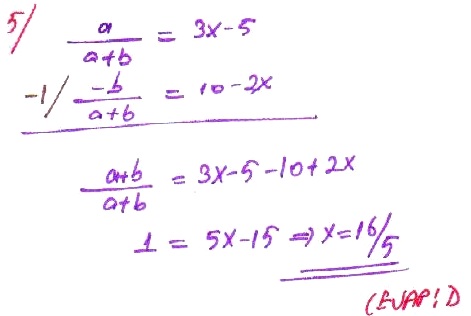 5/ a/(a+b) = 3x-5
-1/ -b/(a+b) = 10-2x
(a+b)/(a+b) = 3x-5-10+2x
1 = 5x-15 ⇒ x=16/5
(EVAP!D